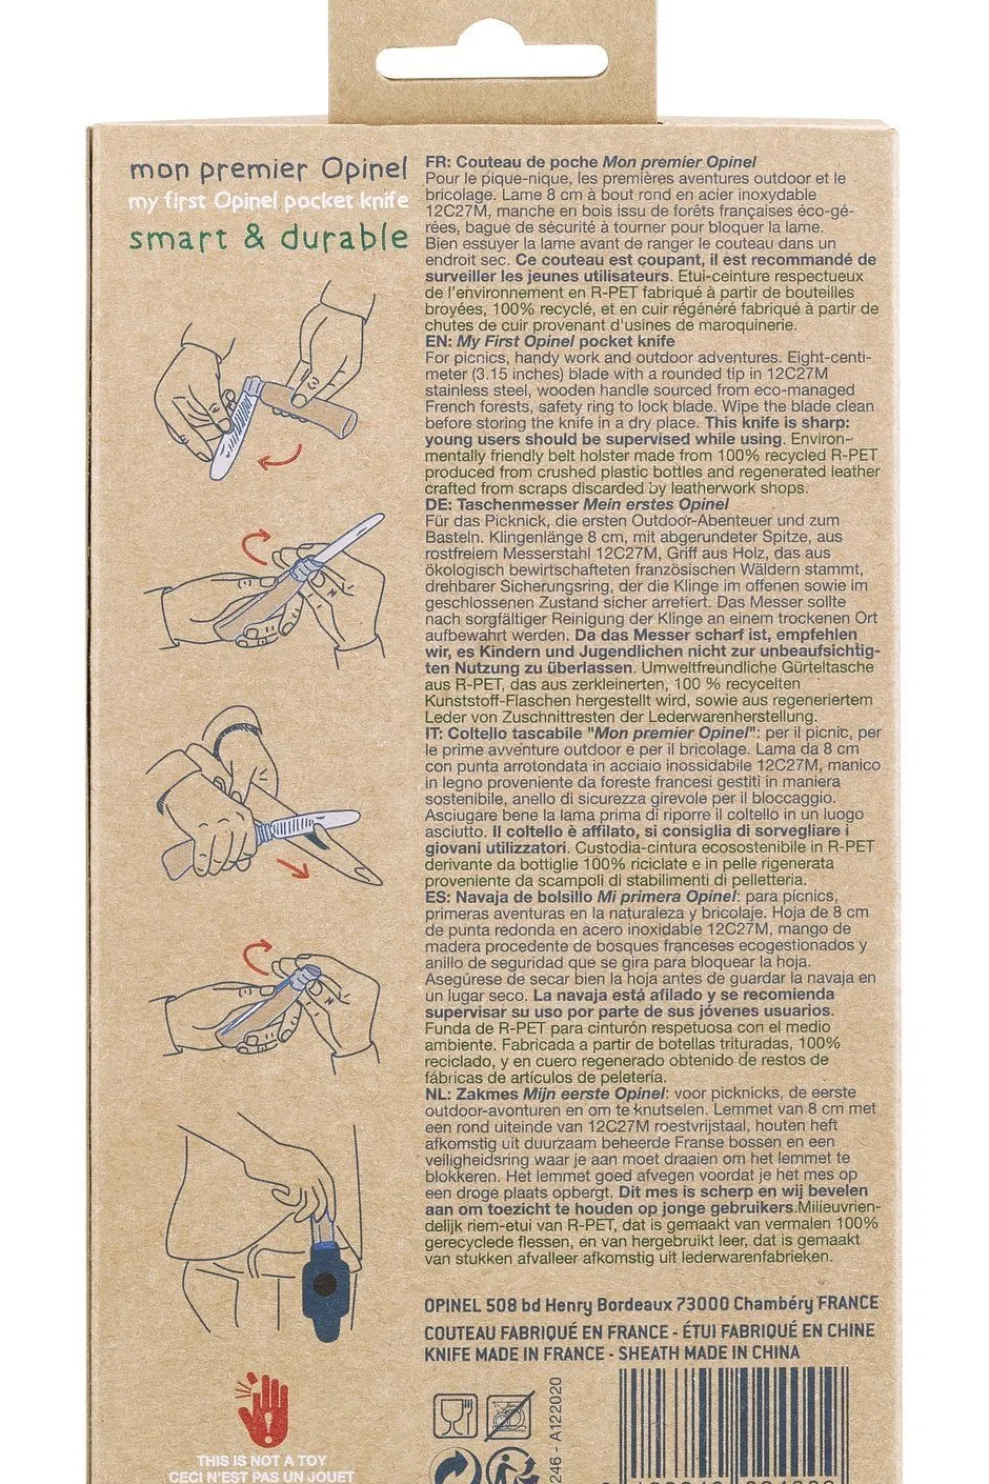 mon premier Opinel
my first Opinel pocket knife
smart & durable
FR: Couteau de poche Mon premier Opinel
Pour le pique-nique, les premières aventures outdoor et le
bricolage. Lame 8 cm à bout rond en acier inoxydable
12C27M, manche en bois issu de forêts françaises éco-gé-
rées, bague de sécurité à tourner pour bloquer la lame.
Bien essuyer la lame avant de ranger le couteau dans un
endroit sec. Ce couteau est coupant, il est recommandé de
surveiller les jeunes utilisateurs. Etui-ceinture respectueux
de l'environnement en R-PET fabriqué à partir de bouteilles
broyées, 100% recyclé, et en cuir régénéré fabriqué à partir de
chutes de cuir provenant d'usines de maroquinerie.
EN: My First Opinel pocket knife
For picnics, handy work and outdoor adventures. Eight-centi-
meter (3.15 inches) blade with a rounded tip in 12C27M
stainless steel, wooden handle sourced from eco-managed
French forests, safety ring to lock blade. Wipe the blade clean
before storing the knife in a dry place. This knife is sharp:
young users should be supervised while using. Environ-
mentally friendly belt holster made from 100% recycled R-PET
produced from crushed plastic bottles and regenerated leather
crafted from scraps discarded by leatherwork shops.
DE: Taschenmesser Mein erstes Opinel
Für das Picknick, die ersten Outdoor-Abenteuer und zum
Basteln. Klingenlänge 8 cm, mit abgerundeter Spitze, aus
rostfreiem Messerstahl 12C27M, Griff aus Holz, das aus
ökologisch bewirtschafteten französischen Wäldern stammt,
drehbarer Sicherungsring, der die Klinge im offenen sowie im
geschlossenen Zustand sicher arretiert. Das Messer sollte
nach sorgfältiger Reinigung der Klinge an einem trockenen Ort
aufbewahrt werden. Da das Messer scharf ist, empfehlen
wir, es Kindern und Jugendlichen nicht zur unbeaufsichtig-
ten Nutzung zu überlassen. Umweltfreundliche Gürteltasche
aus R-PET, das aus zerkleinerten, 100 % recycelten
Kunststoff-Flaschen hergestellt wird, sowie aus regeneriertem
Leder von Zuschnittresten der Lederwarenherstellung.
IT: Coltello tascabile "Mon premier Opinel": per il picnic, per
le prime avventure outdoor e per il bricolage. Lama da 8 cm
con punta arrotondata in acciaio inossidabile 12C27M, manico
in legno proveniente da foreste francesi gestiti in maniera
sostenibile, anello di sicurezza girevole per il bloccaggio.
Asciugare bene la lama prima di riporre il coltello in un luogo
asciutto. Il coltello è affilato, si consiglia di sorvegliare i
giovani utilizzatori. Custodia-cintura ecosostenibile in R-PET
derivante da bottiglie 100% riciclate e in pelle rigenerata
proveniente da scampoli di stabilimenti di pelletteria.
ES: Navaja de bolsillo Mi primera Opinel: para picnics,
primeras aventuras en la naturaleza y bricolaje. Hoja de 8 cm
de punta redonda en acero inoxidable 12C27M, mango de
madera procedente de bosques franceses ecogestionados y
anillo de seguridad que se gira para bloquear la hoja.
Asegúrese de secar bien la hoja antes de guardar la navaja en
un lugar seco. La navaja está afilado y se recomienda
supervisar su uso por parte de sus jóvenes usuarios.
Funda de R-PET para cinturón respetuosa con el medio
ambiente. Fabricada a partir de botellas trituradas, 100%
reciclado, y en cuero regenerado obtenido de restos de
fábricas de artículos de peletería.
NL: Zakmes Mijn eerste Opinel: voor picknicks, de eerste
outdoor-avonturen en om te knutselen. Lemmet van 8 cm met
een rond uiteinde van 12C27M roestvrijstaal, houten heft
afkomstig uit duurzaam beheerde Franse bossen en een
veiligheidsring waar je aan moet draaien om het lemmet te
blokkeren. Het lemmet goed afvegen voordat je het mes op
een droge plaats opbergt. Dit mes is scherp en wij bevelen
aan om toezicht te houden op jonge gebruikers.Milieuvrien-
delijk riem-etui van R-PET, dat is gemaakt van vermalen 100%
gerecyclede flessen, en van hergebruikt leer, dat is gemaakt
van stukken afvalleer afkomstig uit lederwarenfabrieken.
OPINEL 508 bd Henry Bordeaux 73000 Chambéry FRANCE
COUTEAU FABRIQUÉ EN FRANCE - ÉTUI FABRIQUÉ EN CHINE
KNIFE MADE IN FRANCE - SHEATH MADE IN CHINA
246 - A122020
THIS IS NOT A TOY
CECI N'EST PAS UN JOUET